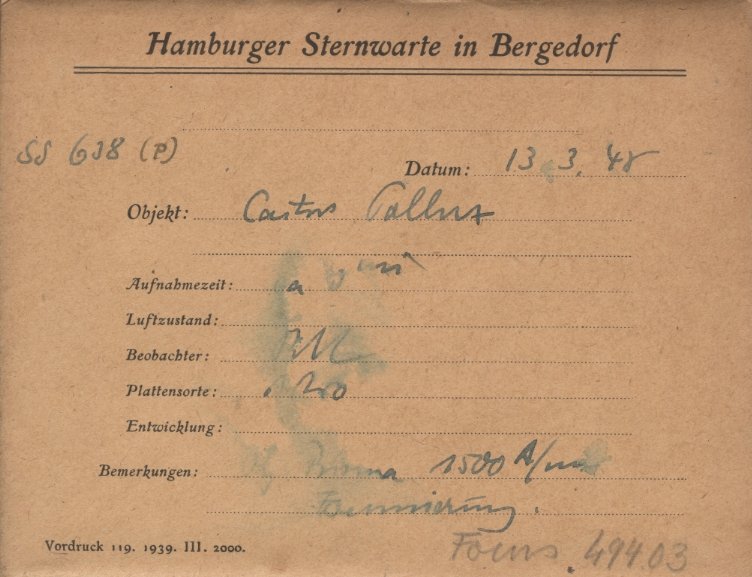 Hamburger Sternwarte in Bergedorf
SS 638 (P)
Datum: 13. 3. 48
Objekt: Castor Pollux
Aufnahmezeit:
Luftzustand:
Beobachter:
Plattensorte:
Entwicklung:
Bemerkungen: Prisma 1500 A/mm
Vordruck 119. 1939. III. 2000.
Focus. 494.03